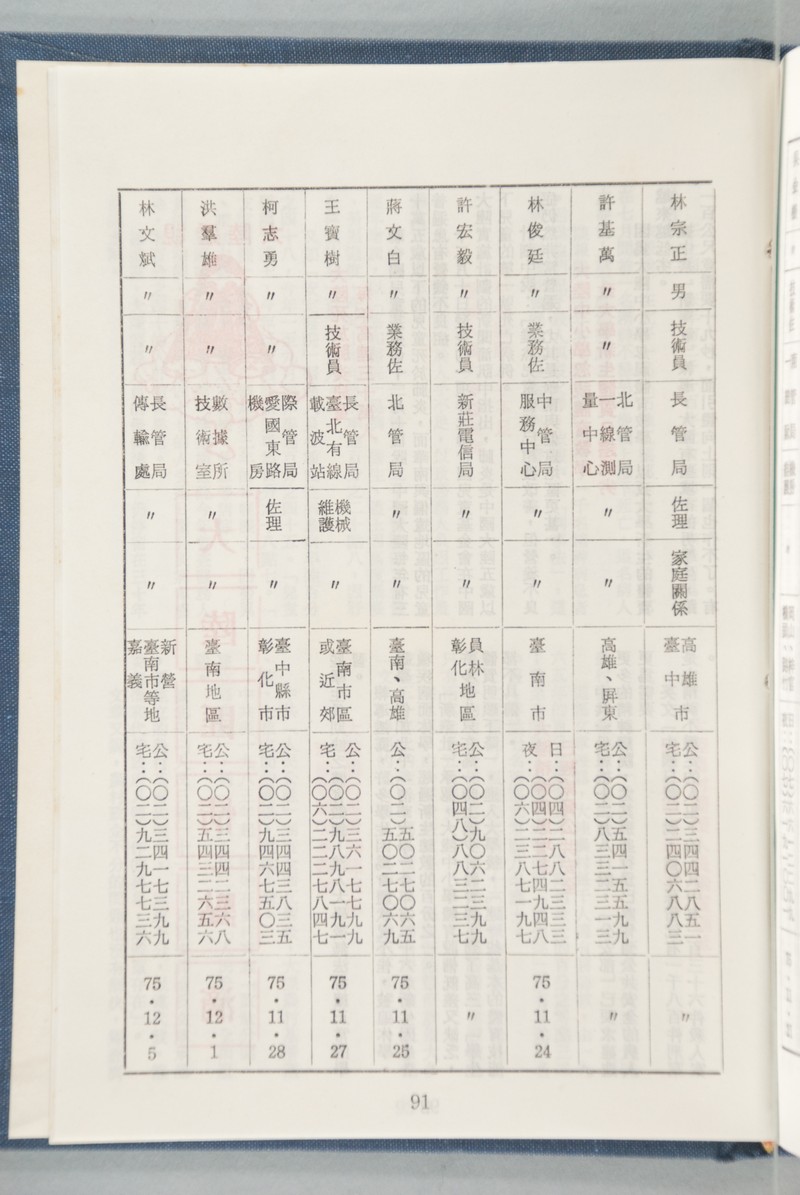 林宗正
男
技術員
長管局
佐理
家庭關係
高雄
臺中市
公：（〇二）三四四二八五一
宅：（〇二）二四〇六八八三
〃
許基萬
〃
〃
北管局
一線測
量中心
〃
〃
高雄、屏東
公：（〇二）
宅：（〇二）
〃
林俊廷
〃
業務佐
中管局
服務中心
〃
〃
臺南市
日：（〇四）二八八二三三三
（〇四）二二七四九四八
夜：（〇六）二三八七一九七
75・11・24
許宏毅
〃
技術員
新莊電信局
〃
〃
員林
彰化地區
公：（〇二）九〇六二三九九
宅：（〇四八）八八三二三七
〃
蔣文白
〃
業務佐
北管局
〃
〃
臺南、高雄
公：（〇二）
五〇二七〇六五
五〇二七〇六九
75・11・25
王寶樹
〃
技術員
長管局
臺北有線
載波站
機械
維護
〃
臺南市區
或近郊
公：（〇二）三六一七七九九
宅：（〇六）二二二七八四七
75・11・27
柯志勇
〃
〃
際管局
愛國東路
機房
佐理
〃
臺中縣市
彰化市
公：（〇二）三四四三八三五
宅：（〇二）九四六七五〇三
75・11・28
洪羣雄
〃
〃
數據所
技術室
〃
〃
臺南地區
公：（〇二）三四四二三六八
宅：（〇二）五四三二六五六
75・12・1
林文斌
〃
〃
長管局
傳輸處
〃
〃
新營
臺南市等地
嘉義
公：（〇二）三四一七三九九
宅：（〇二）九二九七七三六
75・12・5
91